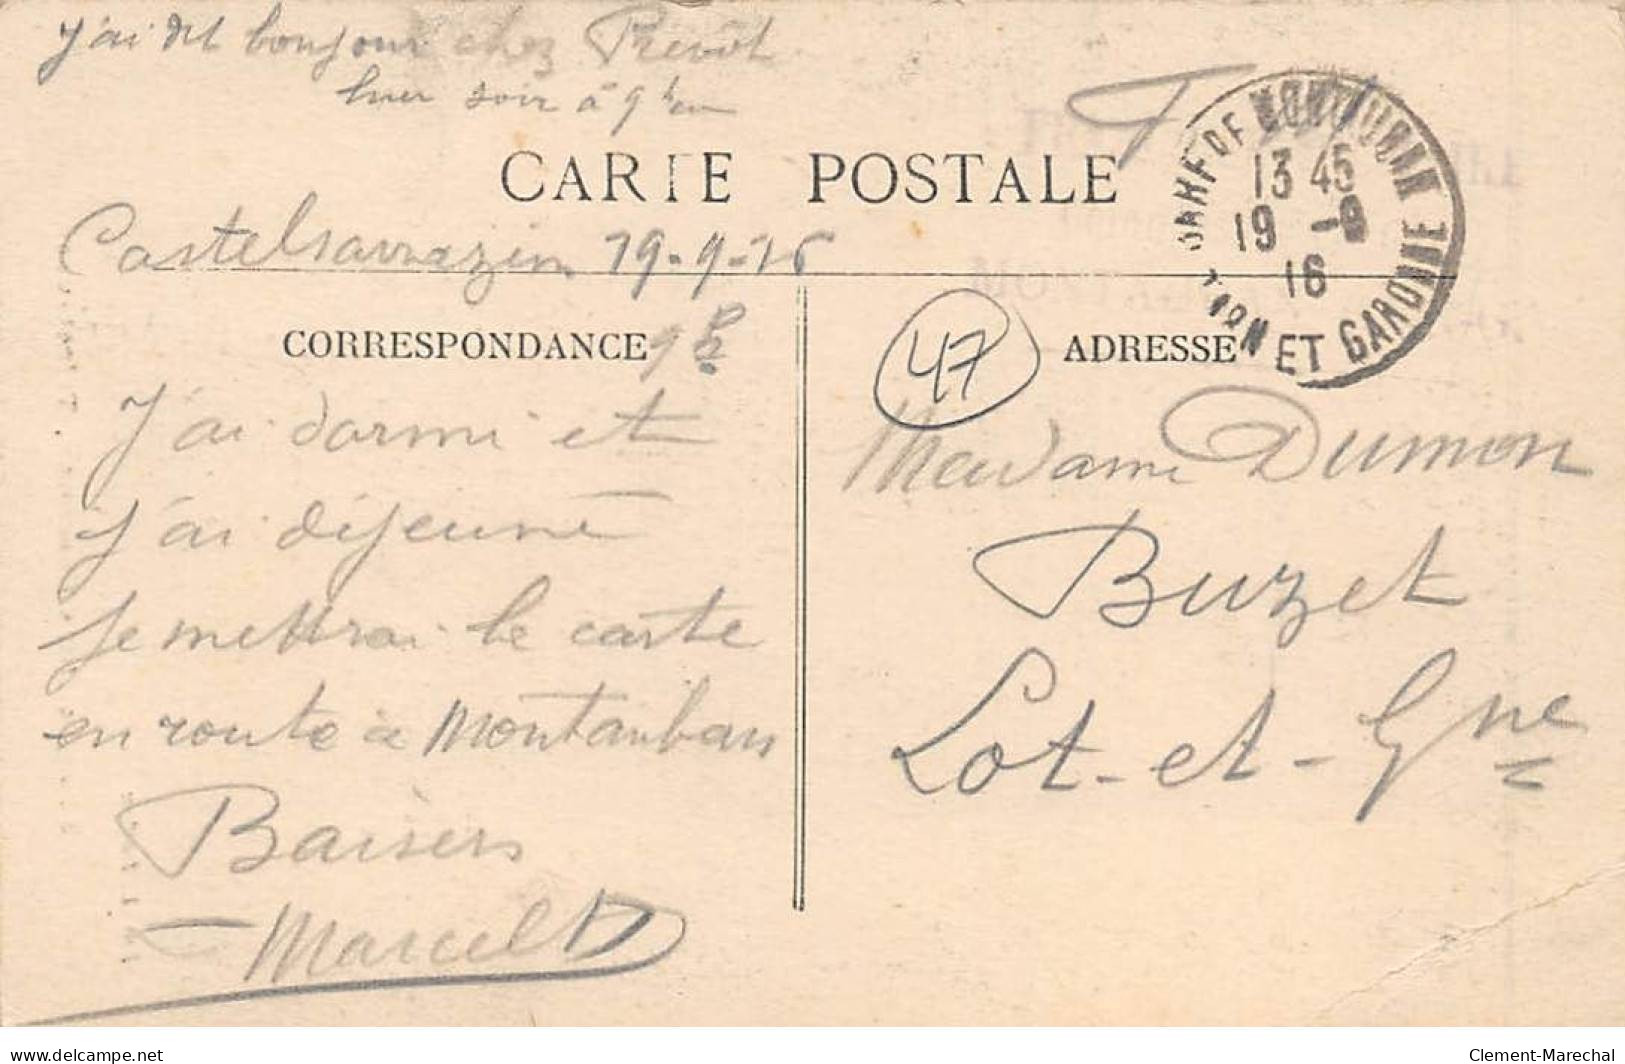 J'ai dit bonjour chez Prévôt
hier soir à 9h
CARTE POSTALE
Castelsarrazin 19-9-16
CORRESPONDANCE
J'ai dormi et
j'ai déjeuné
Je mettrai la carte
en route à Montauban
Baisers
Marcel D
GARE DE MONTAUBAN
13 45
19 -9
16
TARN ET GARONNE
47
ADRESSE
Madame Dumon
Buzet
Lot-et-Gne
delcampe.net
Clement-Marechal